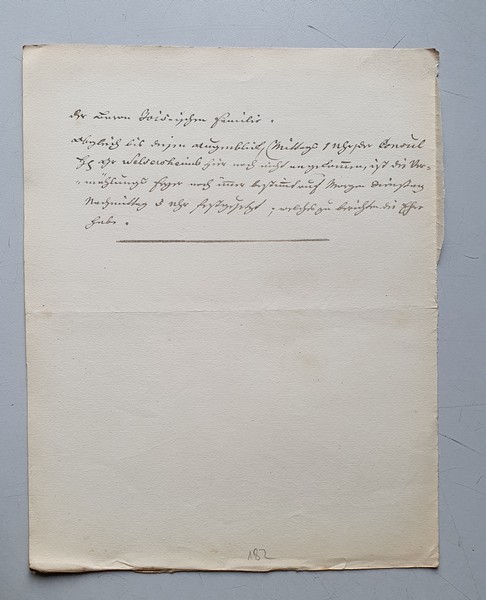 Der Baron Friedrischen Familie.
Obgleich bis diesen Augenblick, (Mittags 1 Uhr) der Consul
Hr. von Waldersheimb hier noch nicht angekommen, ist die Ver-
-mählungs Feyer noch immer bestimmt auf Morgen Dienstag
Nachmittag 5 Uhr festgesetzt, welches zu berichten die Ehre
habe.
182